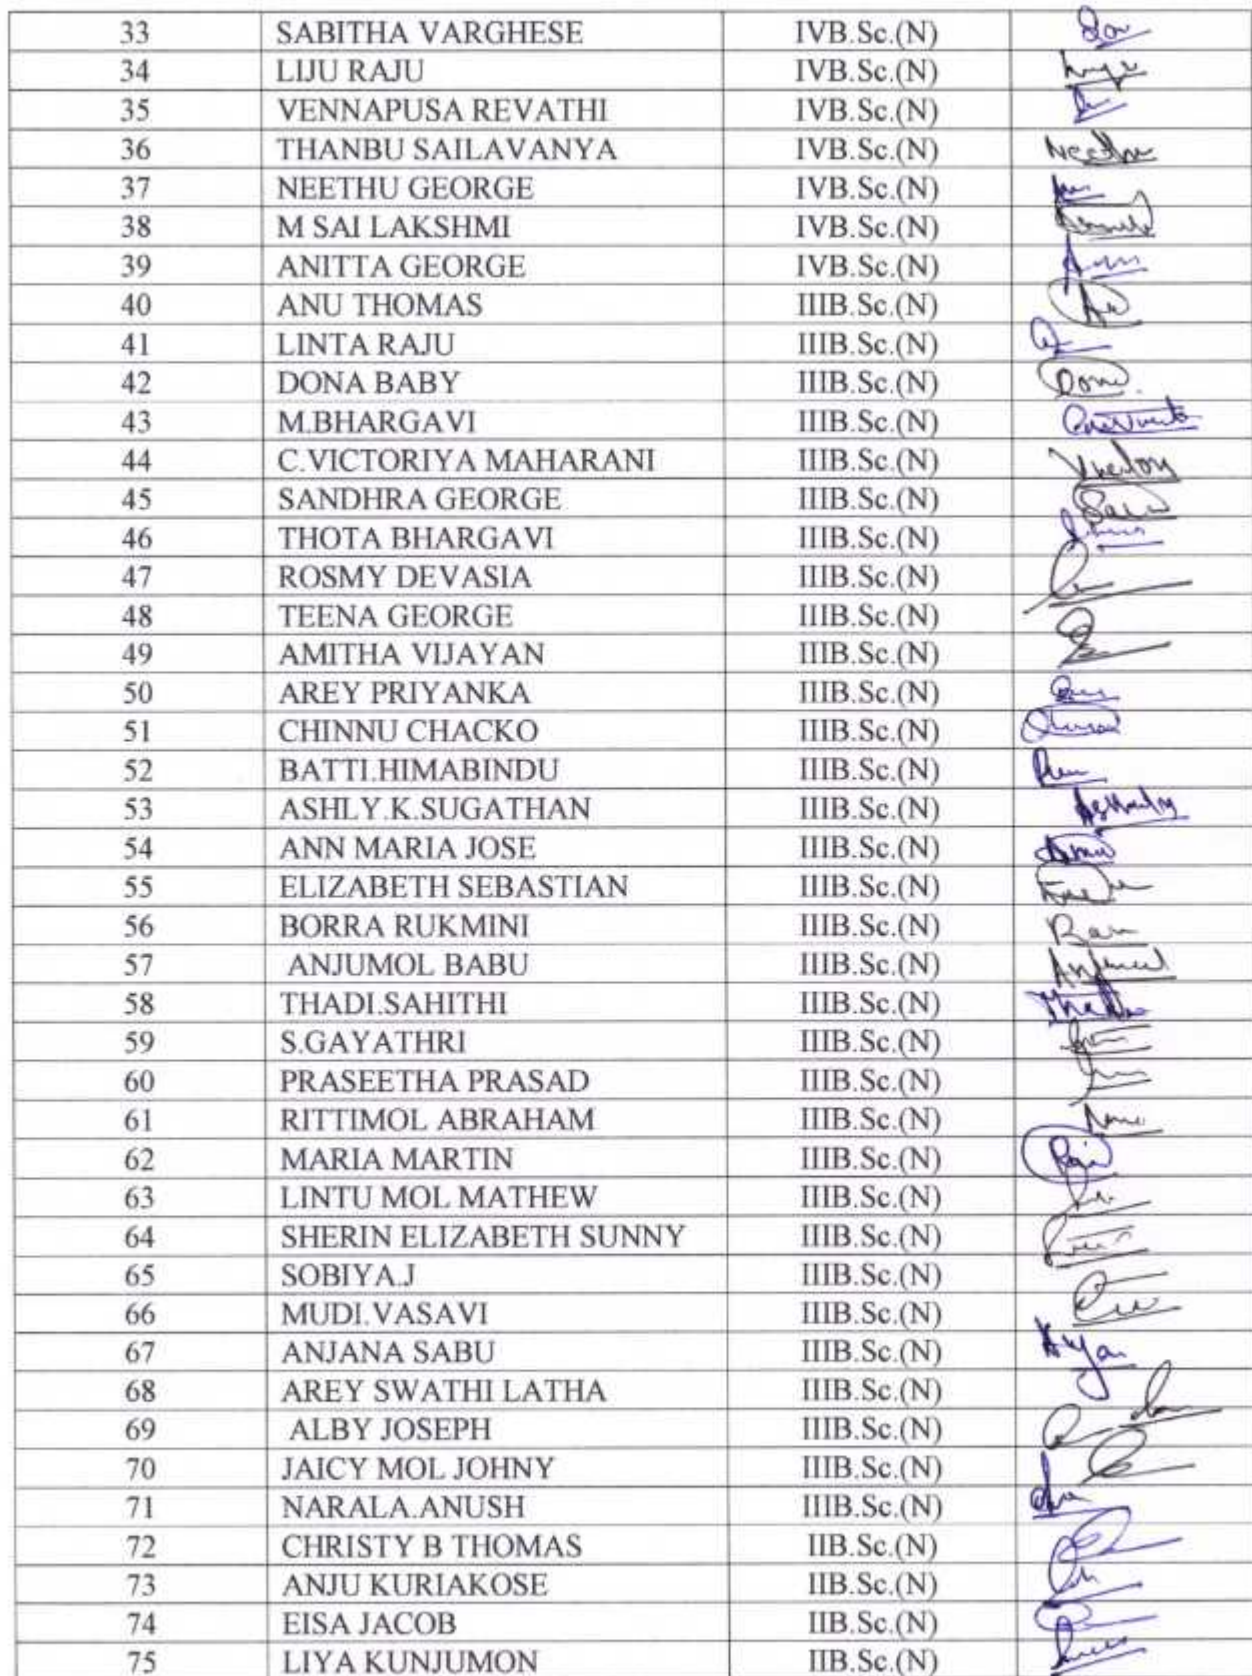 33 SABITHA VARGHESE IVB.Sc.(N)
34 LIJU RAJU IVB.Sc.(N)
35 VENNAPUSA REVATHI IVB.Sc.(N)
36 THANBU SAILAVANYA IVB.Sc.(N) Neethu
37 NEETHU GEORGE IVB.Sc.(N)
38 M SAI LAKSHMI IVB.Sc.(N)
39 ANITTA GEORGE IVB.Sc.(N)
40 ANU THOMAS IIIB.Sc.(N)
41 LINTA RAJU IIIB.Sc.(N)
42 DONA BABY IIIB.Sc.(N)
43 M.BHARGAVI IIIB.Sc.(N)
44 C.VICTORIYA MAHARANI IIIB.Sc.(N)
45 SANDHRA GEORGE IIIB.Sc.(N)
46 THOTA BHARGAVI IIIB.Sc.(N)
47 ROSMY DEVASIA IIIB.Sc.(N)
48 TEENA GEORGE IIIB.Sc.(N)
49 AMITHA VIJAYAN IIIB.Sc.(N)
50 AREY PRIYANKA IIIB.Sc.(N)
51 CHINNU CHACKO IIIB.Sc.(N)
52 BATTI.HIMABINDU IIIB.Sc.(N)
53 ASHLY.K.SUGATHAN IIIB.Sc.(N)
54 ANN MARIA JOSE IIIB.Sc.(N)
55 ELIZABETH SEBASTIAN IIIB.Sc.(N)
56 BORRA RUKMINI IIIB.Sc.(N)
57 ANJUMOL BABU IIIB.Sc.(N)
58 THADI.SAHITHI IIIB.Sc.(N)
59 S.GAYATHRI IIIB.Sc.(N)
60 PRASEETHA PRASAD IIIB.Sc.(N)
61 RITTIMOL ABRAHAM IIIB.Sc.(N)
62 MARIA MARTIN IIIB.Sc.(N)
63 LINTU MOL MATHEW IIIB.Sc.(N)
64 SHERIN ELIZABETH SUNNY IIIB.Sc.(N)
65 SOBIYA.J IIIB.Sc.(N)
66 MUDI.VASAVI IIIB.Sc.(N)
67 ANJANA SABU IIIB.Sc.(N)
68 AREY SWATHI LATHA IIIB.Sc.(N)
69 ALBY JOSEPH IIIB.Sc.(N)
70 JAICY MOL JOHNY IIIB.Sc.(N)
71 NARALA.ANUSH IIIB.Sc.(N)
72 CHRISTY B THOMAS IIB.Sc.(N)
73 ANJU KURIAKOSE IIB.Sc.(N)
74 EISA JACOB IIB.Sc.(N)
75 LIYA KUNJUMON IIB.Sc.(N)